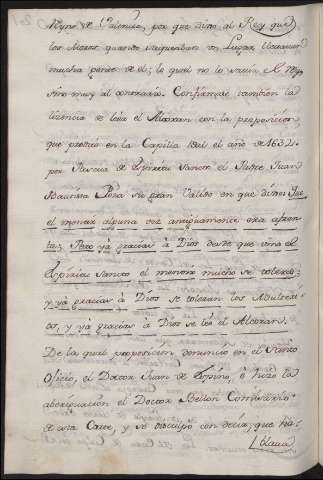 Reyno de Valencia, por que dixo al Rey que
los Moros quando saqueaban un Lugar llevaban
mucha parte de el; lo qual no lo haria el Rey,
sino muy al contrario. Confirmase tambien la
licencia de leer el Alcoran con la proposicion
que predicó en la Capilla Real el año de 1632.
por Pascua de Espiritu Santo el Padre Juan
Bautista Poza su gran Valido en que dixo: Que
el mentir alguna vez antiguamente era afren-
ta; Pero yá gracias à Dios desde que vino el
Espiritu Santo el mentir mucho se tolera;
y yá gracias à Dios se toleran los Adulteri-
os, y yá gracias à Dios se lee el Alcoran.
De la qual proposicion denunció en el Santo
Oficio, el Doctor Juan de Espino, è hizo la
aberiguacion el Doctor Bellon Comisario
de esta Corte, y se disculpó con decir, que
blaua